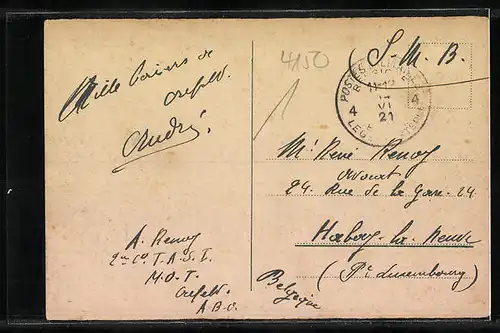 Mille baisers de
Crefeld.
André.
A. Renoy
2me Cie T.A.S.I.
M.O.T.
Crefeld.
A.B.O.
4/50
(S.M.B.)
POSTES MILITAIRES
4 11-12 4
VI
21
Mr René Renoy
Avocat
24. Rue de la Gare. 24
Habay-la-Neuve
(Pce Luxembourg)
Belgique